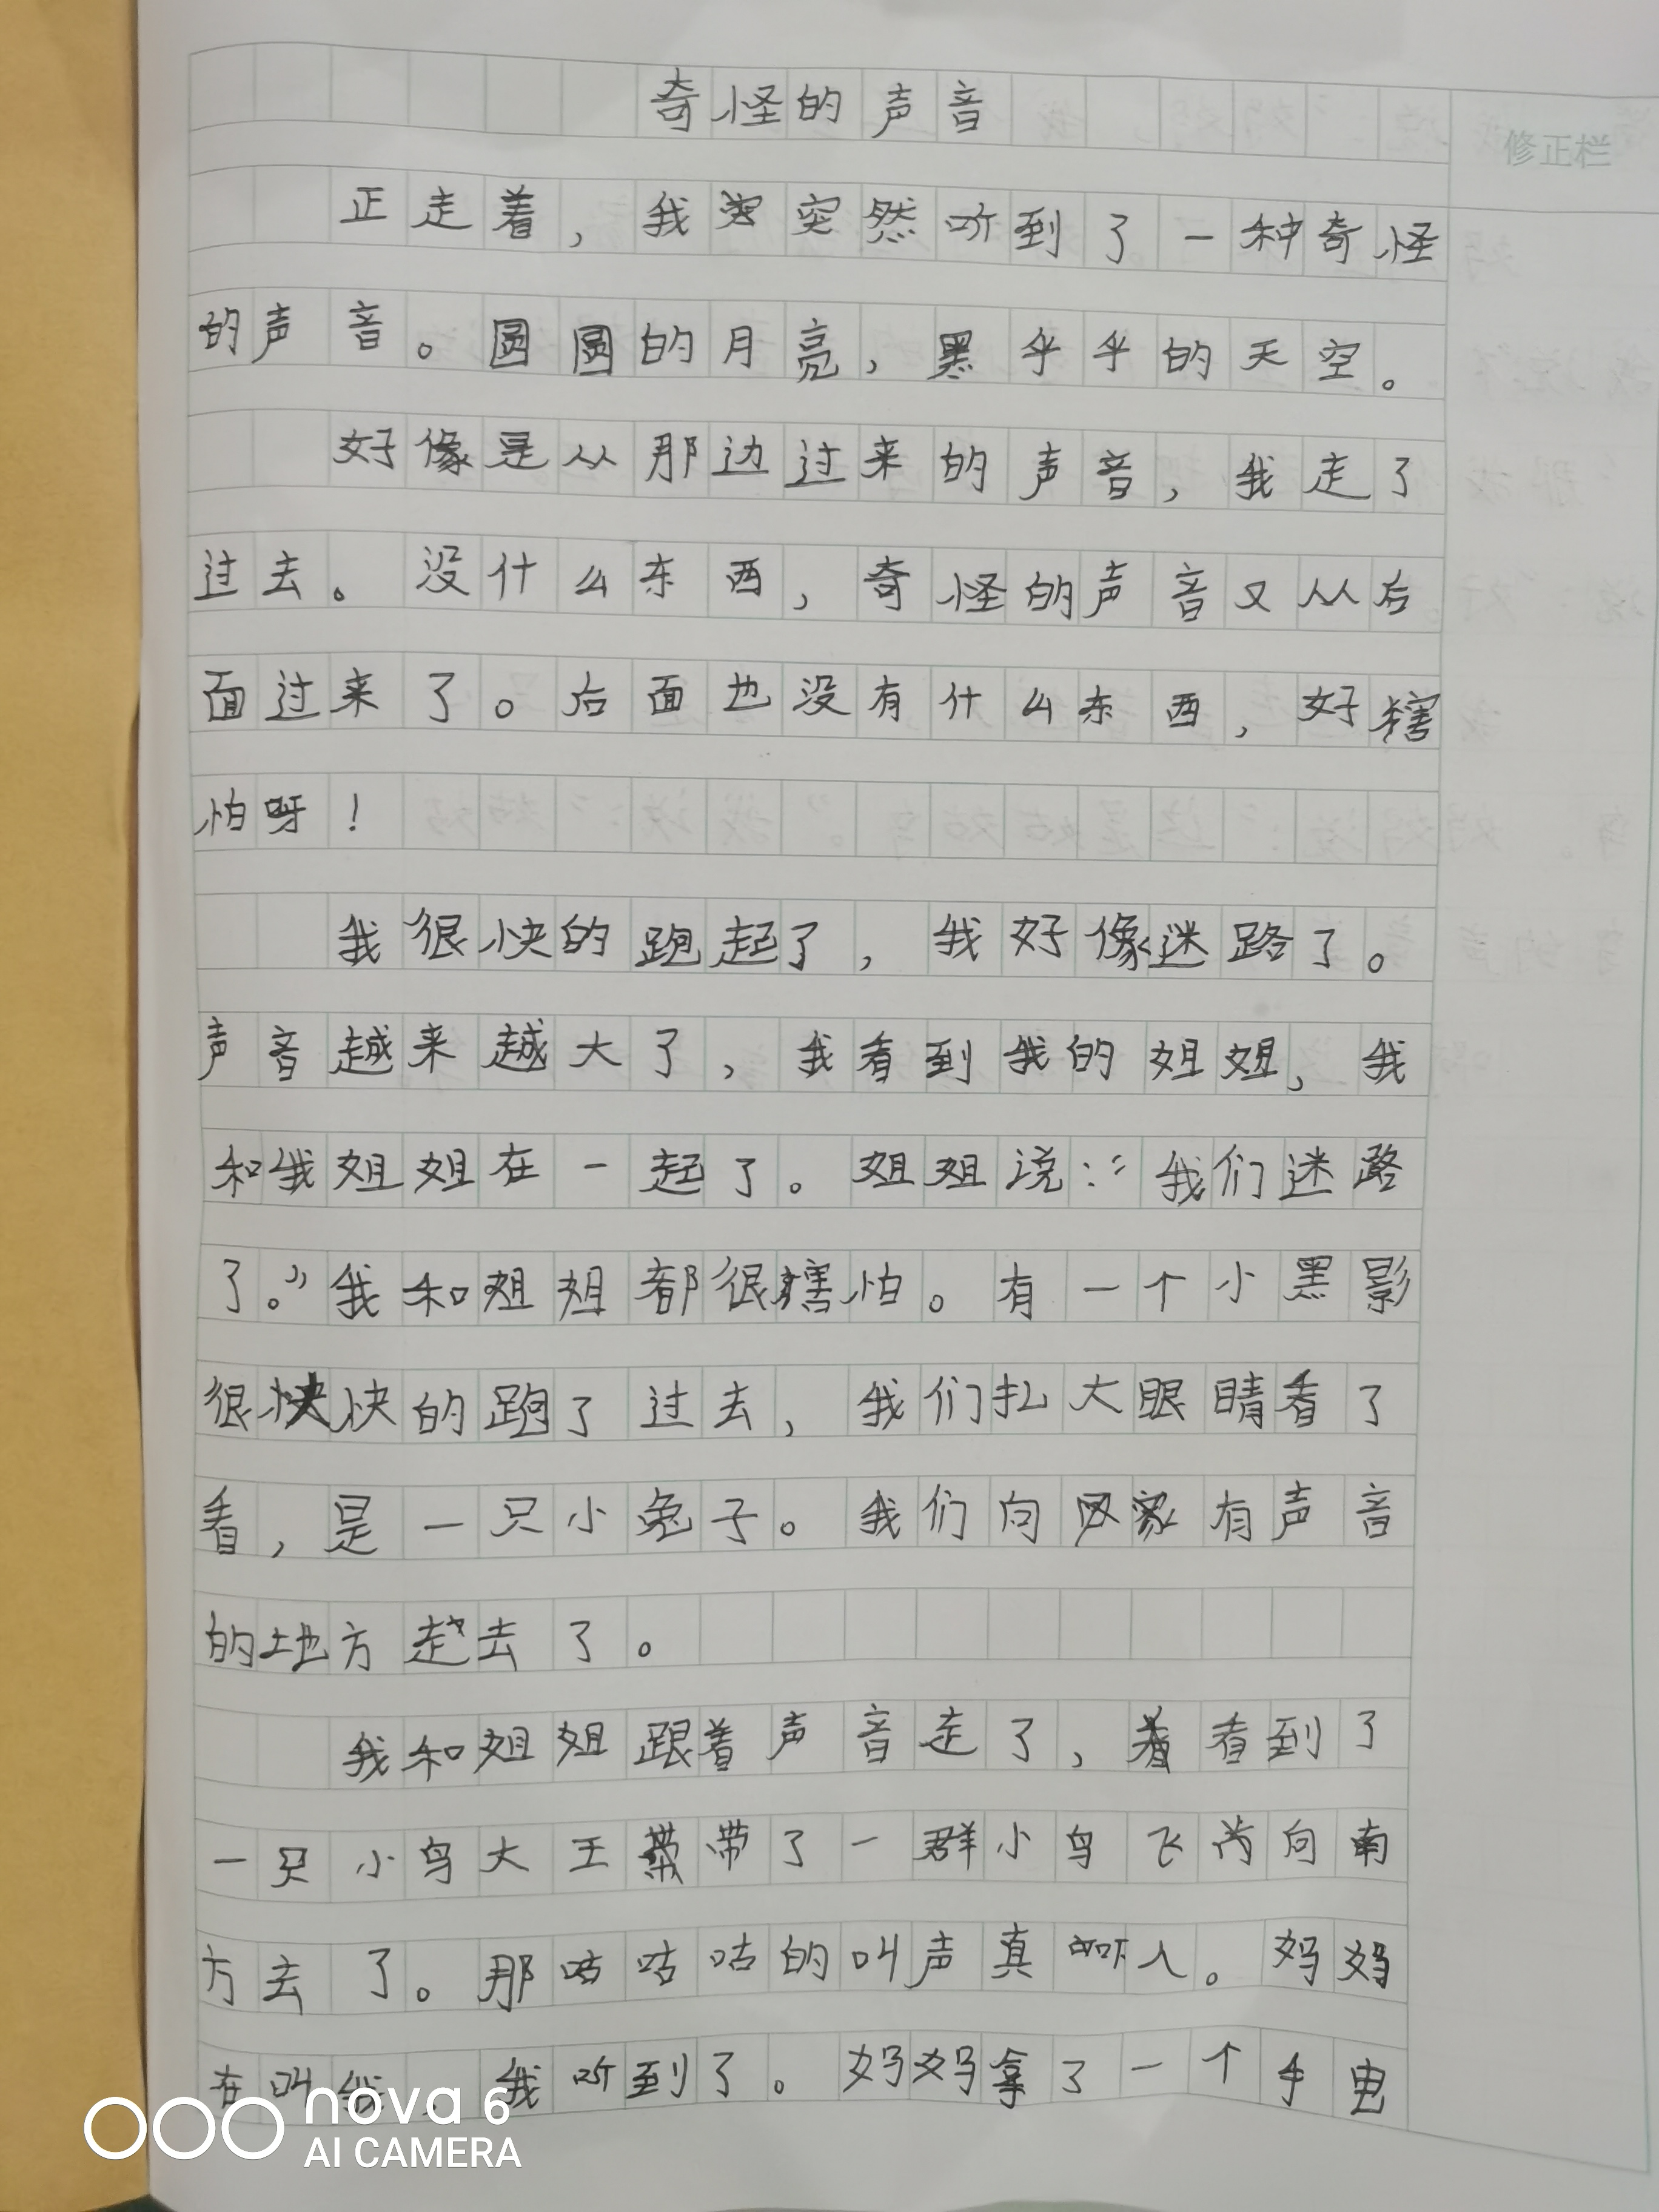 奇怪的声音
修正栏
正走着，我突然听到了一种奇怪
的声音。圆圆的月亮，黑乎乎的天空。
好像是从那边过来的声音，我走了
过去。没什么东西，奇怪的声音又从后
面过来了。后面也没有什么东西，好
怕呀！
我很快的跑起了，我好像迷路了。
声音越来越大了，我看到我的姐姐，我
和我姐姐在一起了。姐姐说：“我们迷路
了。”我和姐姐都很怕。有一个小黑影
很快的跑了过去，我们扎大眼睛看了
看，是一只小兔子。我们向有声音
的地方走去了。
我和姐姐跟着声音走了，看到了
一只小鸟大王带了一群小鸟飞尚向南
方去了。那咕咕咕的叫声真吓人。妈妈
在叫我，我听到了。妈妈拿了一个手电
nova 6
AI CAMERA